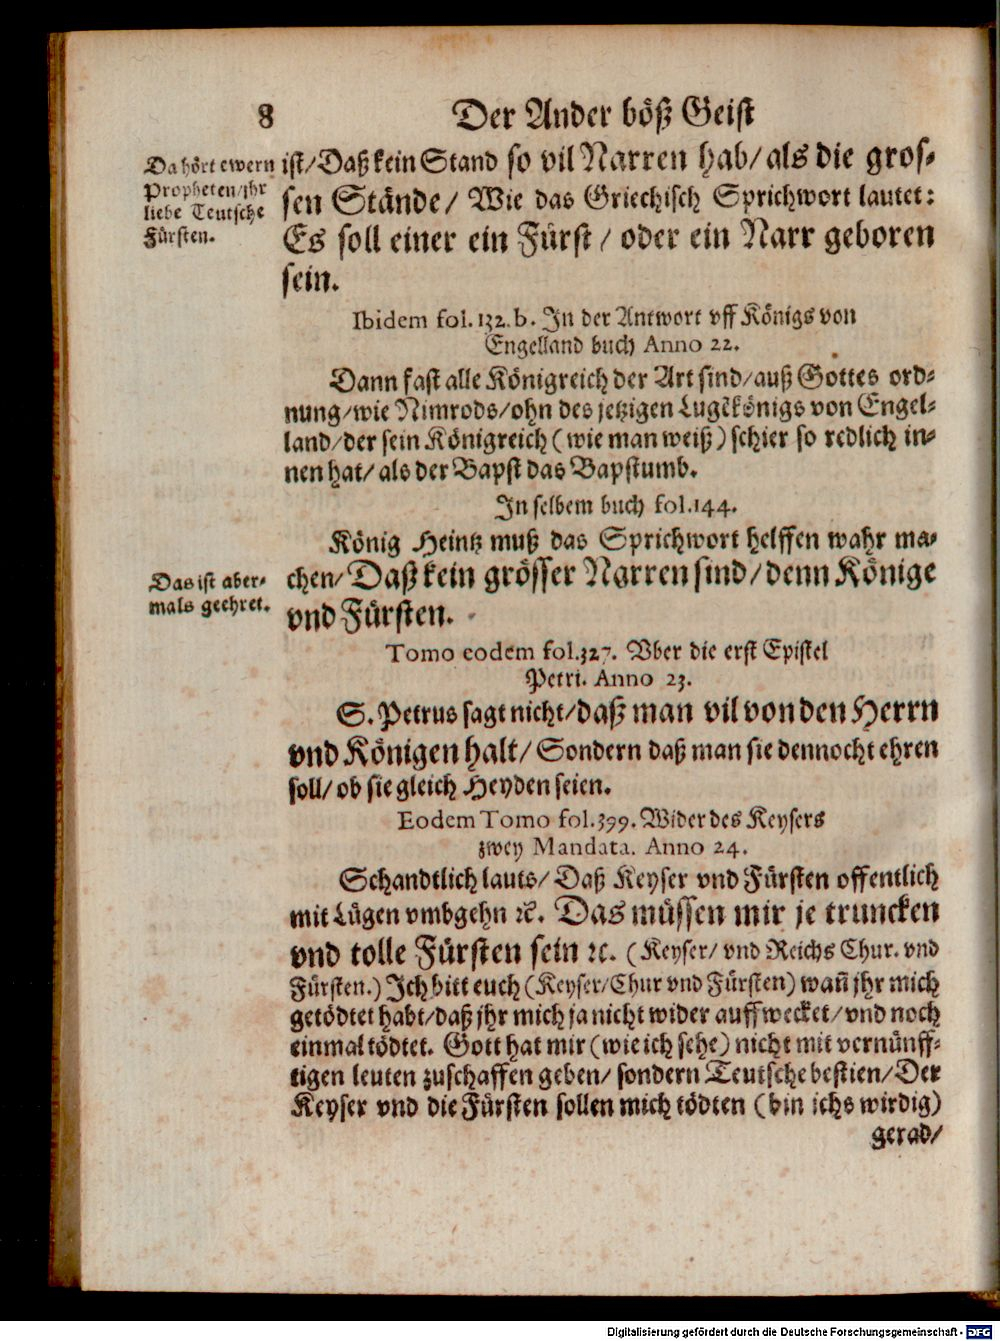 8 Der Ander böß Geist
Da hört ewern
Propheten/jhr
liebe Teutsche
Fürsten.
ist/Daß kein Stand so vil Narren hab/als die gros-
sen Stände/ Wie das Griechisch Sprichwort lautet:
Es soll einer ein Fürst/ oder ein Narr geboren
sein.
Ibidem fol. 132. b. In der Antwort vff Königs von
Engelland buch Anno 22.
Dann fast alle Königreich der Art sind/auß Gottes ord-
nung/wie Nimrods/ohn des jetzigen Lugẽkönigs von Engel-
land/der sein Königreich (wie man weiß) schier so redlich in-
nen hat/ als der Bapst das Bapstumb.
In selbem buch fol.144.
König Heintz muß das Sprichwort helffen wahr ma-
Das ist aber-
mals geehret.
chen/Daß kein grösser Narren sind/denn Könige
vnd Fürsten.
Tomo eodem fol.327. Vber die erst Epistel
Petri. Anno 23.
S. Petrus sagt nicht/daß man vil von den Herrn
vnd Königen halt/Sondern daß man sie dennocht ehren
soll/ ob sie gleich Heyden seien.
Eodem Tomo fol.399. Wider des Keysers
zwey Mandata. Anno 24.
Schandtlich lauts/ Daß Keyser vnd Fürsten offentlich
mit Lügen vmbgehn ꝛc. Das müssen mir je truncken
vnd tolle Fürsten sein ꝛc. (Keyser/ vnd Reichs Chur. vnd
Fürsten.) Ich bitt euch (Keyser/Chur vnd Fürsten) wañ jhr mich
getödtet habt/daß jhr mich ja nicht wider auffwecket/vnd noch
einmal tödtet. Gott hat mir (wie ich sehe) nicht mit vernünff-
tigen leuten zuschaffen geben/ sondern Teutsche bestien/Der
Keyser vnd die Fürsten sollen mich tödten (bin ichs wirdig)
gerad/
Digitalisierung gefördert durch die Deutsche Forschungsgemeinschaft - DFG